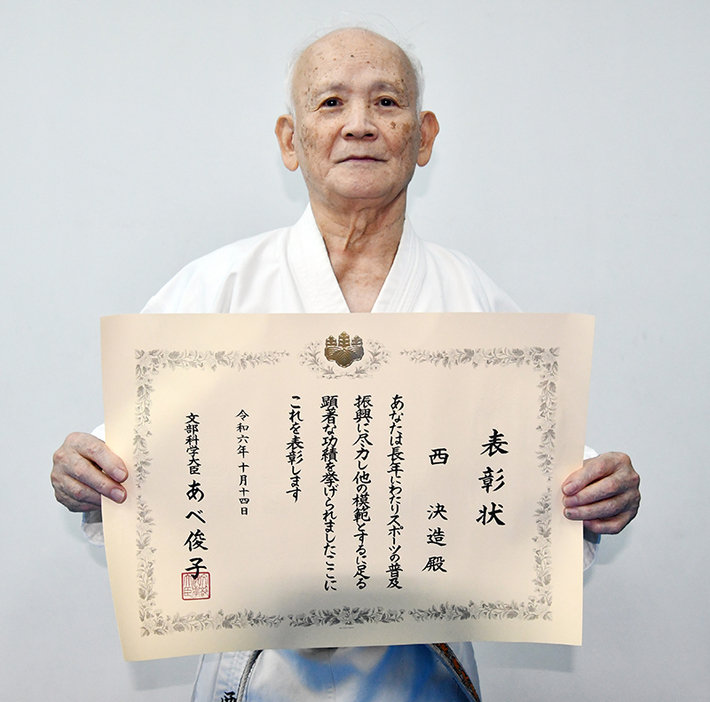 表彰状
西決造殿
あなたは長年にわたりスポーツの普及
振興に尽力し他の模範とするに足る
顕著な功績を挙げられましたここに
これを表彰します
令和六年十月十四日
文部科学大臣 あべ俊子
西